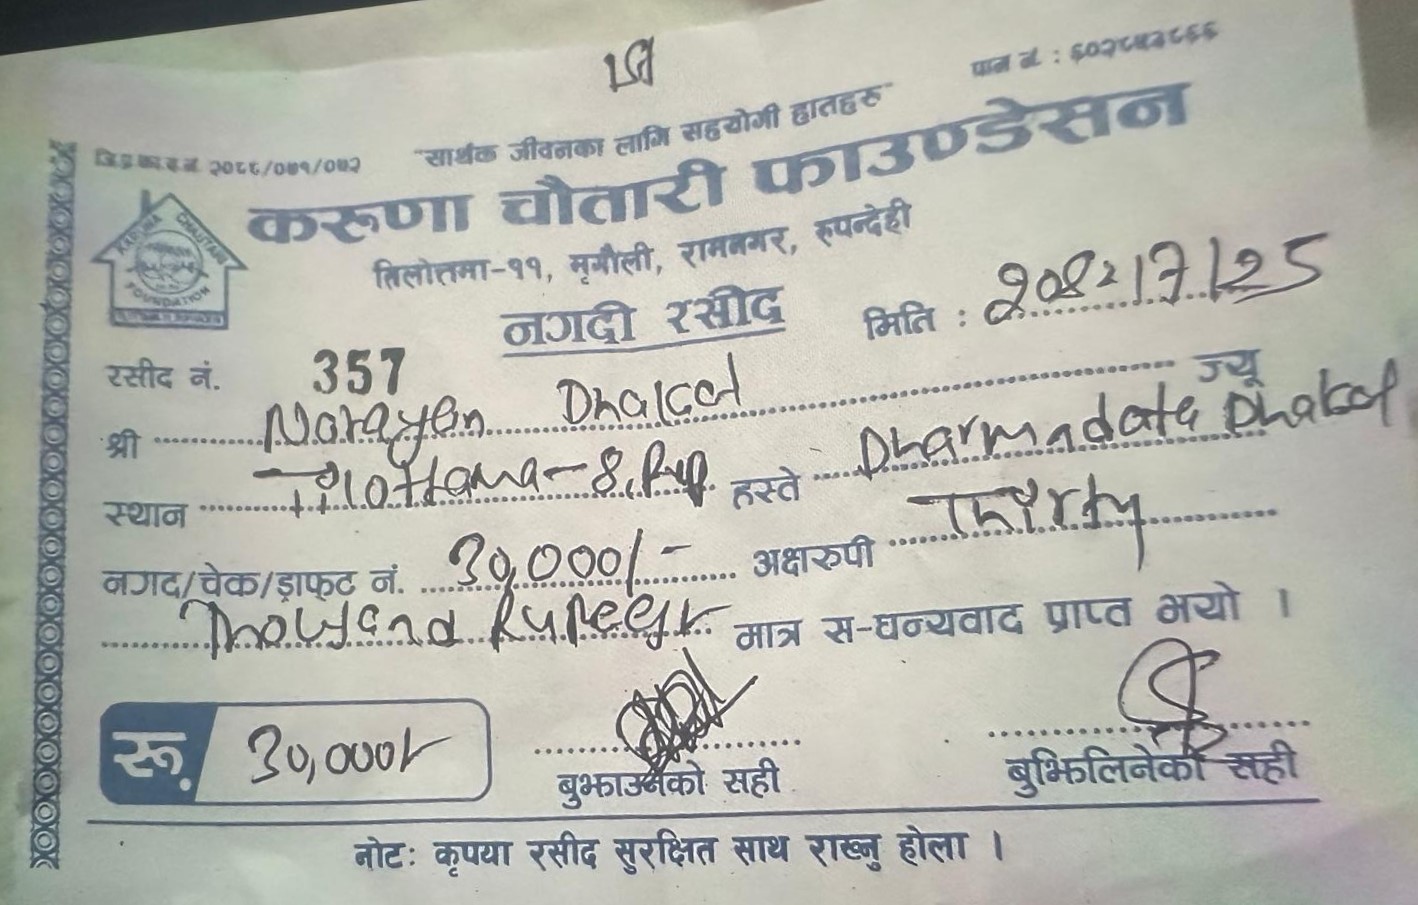 पान नं. : ६०२८५२८६६
जि.प्र.का.द.नं. २०८८/०७१/०७२
"सार्थक जीवनका लागि सहयोगी हातहरु"
करुणा चौतारी फाउण्डेसन
KARUNA CHAUTARI FOUNDATION
तिलोत्तमा-११, मृगौली, रामनगर, रुपन्देही
नगदी रसीद
मिति : 2082/7/25
रसीद नं. 357
श्री Narayan Dhakal ज्यू
स्थान Tilottama-8, Rup हस्ते Dharmadata Dhakal
नगद/चेक/ड्राफ्ट नं. 30,000/- अक्षरुपी Thirty
Thousand Rupees मात्र स-धन्यवाद प्राप्त भयो ।
रू. 30,000/-
बुझाउनेको सही बुझिलिनेको सही
नोट: कृपया रसीद सुरक्षित साथ राख्नु होला ।